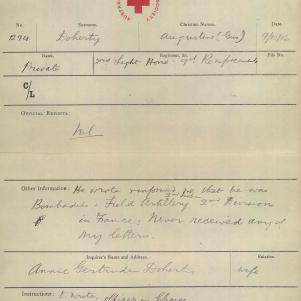 SOCIETY
No.
Surname.
Christian Names.
Date.
1294
Doherty
Augustine (Gus)
Rank.
Regiment, &c.
File No.
Private
2nd Light Horse 9th Reinforcements
C/L
OFFICIAL REPORTS:
Nil
Other Information: He wrote informing me that he was
Bombadier Field Artillery 2nd Division
in France. Never received any of
my letters.
Inquirer's Name and Address.
Relation.
Annie Gertrude Doherty
wife
Instructions: 1. Wrote